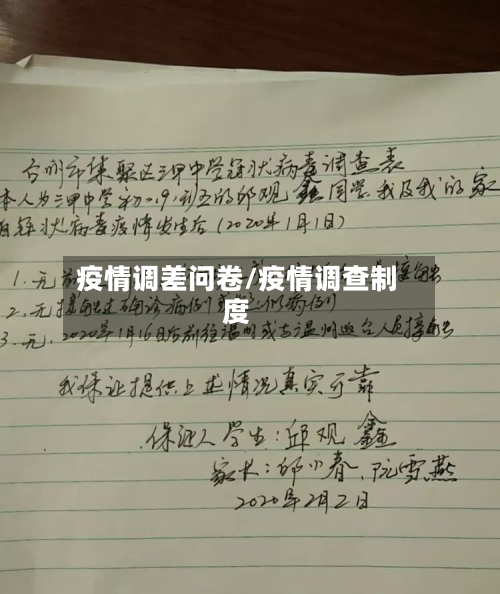 台州市集聚区三甲中学冠状病毒调查表
本人为三甲中学初2019.到五的邱观鑫同学,我及我的家
自冠状病毒疫情发生后(2020年1月1日)
1.无前 接触
疫情调差问卷/疫情调查制
度
2.无接触过确诊病例或 病例
3.无.2020年1月16日后前往温州或与温州返台人员接触
我保证提供上述情况真实可靠
保证人学生:邱观鑫
家长:邱小春、阮雪燕
2020年2月2日